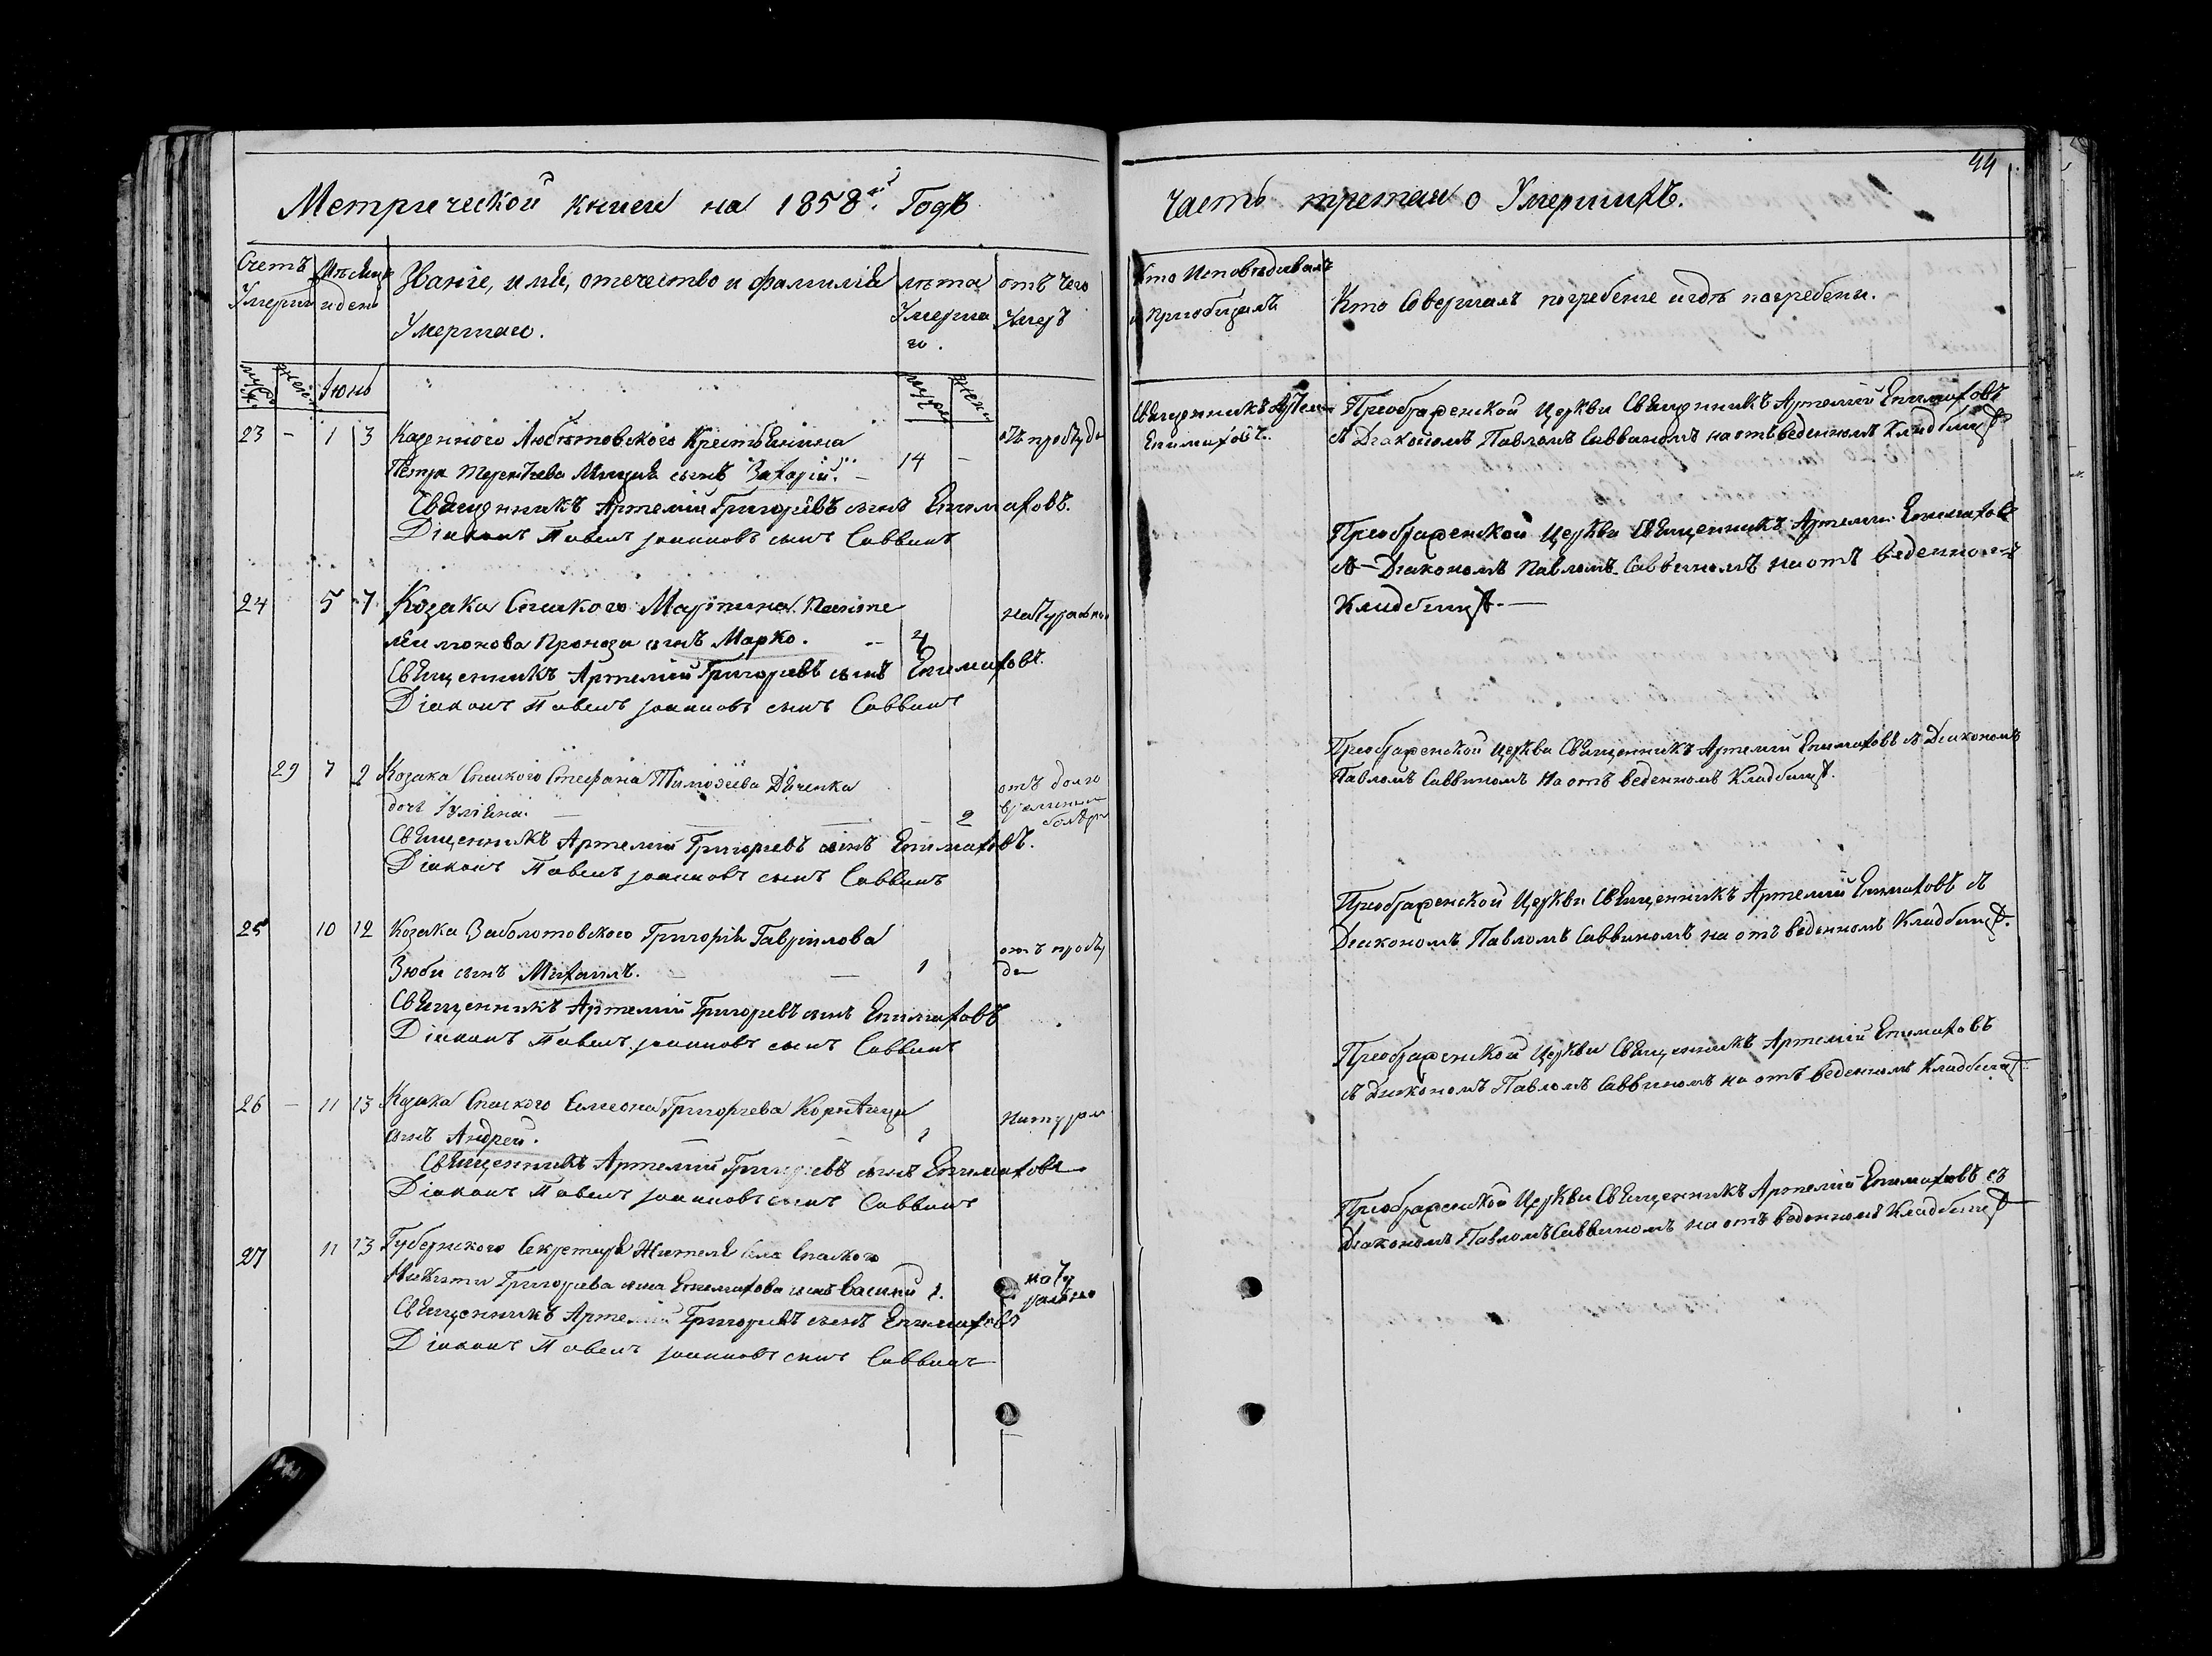 Метрической книги на 1858й. Годъ
Счетъ Умерш
Мѣсяцъ и день
Званіе, имя, отечество и фамилія
Умершаго.
лѣта Умерша го.
отъ чего Умеръ
муж. жен. Іюнь муж. жен.
23 - 1 3 Казенного Любѣтовского Крестьянина отъ простуды
Петра Терентьева сынъ Захарій. - 14 -
Священникъ Артемій Григорьевъ сынъ Епимаховъ.
Діаконъ Павелъ Іоанновъ сынъ Саввинъ
24 5 7 Козака Спаского Мартина натурально
сынъ Марко. - 4
Священникъ Артемій Григорьевъ сынъ Епимаховъ.
Діаконъ Павелъ Іоанновъ сынъ Саввинъ
29 7 9 Козака Спаского Стефана Тимоѳеева отъ долго
дочь Іуліяна. - 2
Священникъ Артемій Григорьевъ сынъ Епимаховъ.
Діаконъ Павелъ Іоанновъ сынъ Саввинъ
25 10 12 Козака Заболотовского Григорія Гаврілова отъ просту
Зюби сынъ Михаилъ. - 1 да
Священникъ Артемій Григорьевъ сынъ Епимаховъ
Діаконъ Павелъ Іоанновъ сынъ Саввинъ
26 - 11 13 Козака Спаского Симеона Григорьева натурал
сынъ Андрей. 1
Священникъ Артемій Григорьевъ сынъ Епимаховъ
Діаконъ Павелъ Іоанновъ сынъ Саввинъ
27 11 13 Губернского Секретаря Жителя села Спаского
Никиты Григорьева сына Епимахова сынъ Василій 1. нату рально
Священникъ Артемій Григорьевъ сынъ Епимаховъ
Діаконъ Павелъ Іоанновъ сынъ Саввинъ
44
часть третая о Умершихъ.
Кто Исповѣдывалъ
и Пріобщалъ
Кто Совершалъ погребеніе и гдѣ погребены.
Священникъ Артемій
Епимаховъ.
Преображенской Церкви Священникъ Артемій Епимаховъ
съ Діакономъ Павломъ Саввиномъ на отъведенномъ Кладбищѣ
Преображенской Церкви Священникъ Артемій Епимаховъ
съ Діакономъ Павломъ Саввиномъ на отъ веденномъ
Кладбищѣ. -
Преображенской Церкви Священникъ Артемій Епимаховъ съ Діакономъ
Павломъ Саввиномъ на отъ веденномъ Кладбищѣ.
Преображенской Церкви Священникъ Артемій Епимаховъ съ
Діакономъ Павломъ Саввиномъ на отъ веденномъ Кладбищѣ.
Преображенской Церкви Священникъ Артемій Епимаховъ
съ Діакономъ Павломъ Саввиномъ на отъ веденномъ Кладбищѣ
Преображенской Церкви Священникъ Артемій Епимаховъ съ
Діакономъ Павломъ Саввиномъ на отъ веденномъ Кладбищѣ